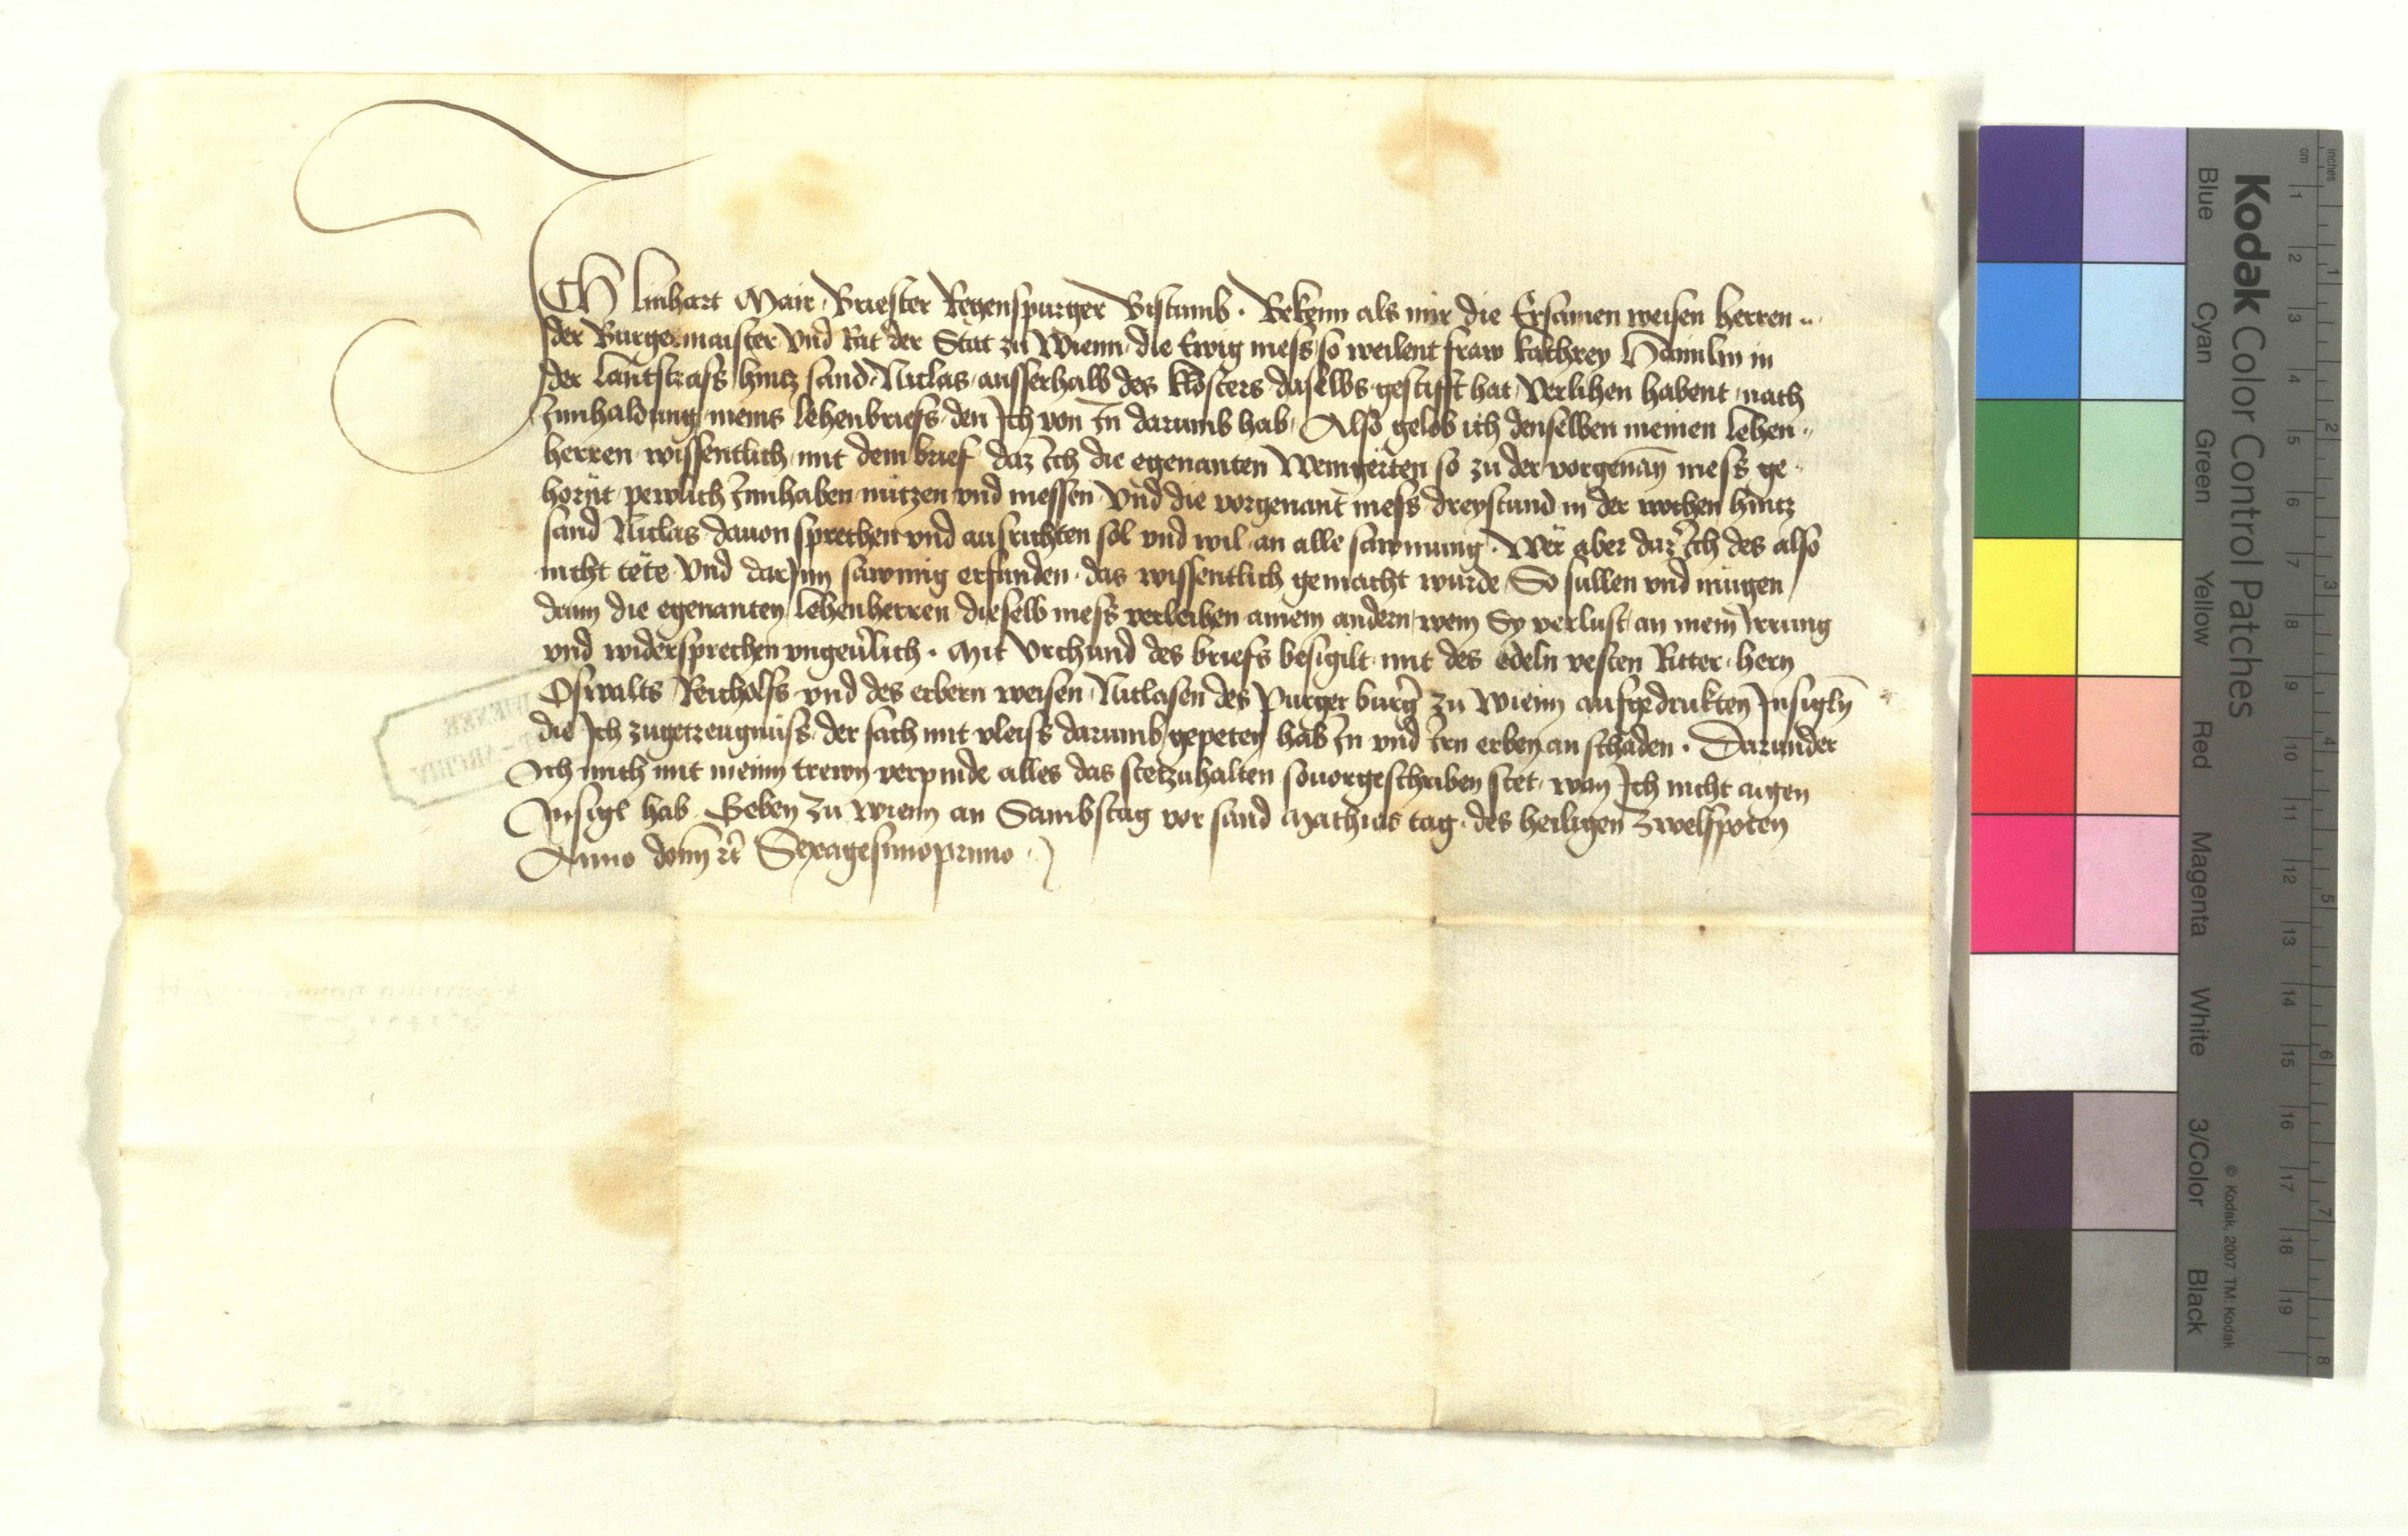 ICH linhart Mair Briester Regenspurger Bistumb · Bekenn als mir die Ersamen weisen herren ..
der Burgermaister vnd Rat der Stat zu Wienn die Ewig mess so weilent fraw kathrey Haimlin in
der lantstrass hincz sand Niclas ausserhalb des klosters daselbs gestifft hat verlihen habent nach
Innhaldung meins lehenbriefs den Ich von In darumb hab Also gelob ich denselben meinen lehen
herren wissentlich mit dem brief daz Ich die egenanten Weingërten so zu der vorgenan mess ge
hornt pewlich Innhaben nutzen vnd niessen vnd die vorgenant mess dreystund in der wochen hincz
sand Niclas dauon sprechen vnd ausrichten sol vnd wil an alle sawmung · Wër aber daz Ich des also
nicht tëte vnd darInn sawmig erfunden das wissentlich gemacht wurde So sullen vnd mügen
dann die egenanten lehenherren dieselb mess verleihen ainem andern wem Sy verlust an mein Irrung
vnd widersprechen vngeuerlich · Mit vrchund des briefs besigilt mit des edeln vesten Ritter hern
Oswalts Reicholfs vnd des erbern weisen Niclasen des Purger burger zu Wienn aufgedrukten Insigln
die Ich zugetzeugnüss der sach mit vleiss darumb gepeten hab In vnd Irn erben an schaden · Darunder
Ich mich mit meinn trewn verpinde alles das stetzuhalten souorgeschriben stet wan Ich nicht aigen
Insigl hab Geben zu Wienn an Sambstag vor sand Mathias tag des heiligen zwelfpoten
Anno domi rc Sexagesimoprimo
Kodak Color Control Patches
Blue Cyan Green Yellow Red Magenta White 3/Color Black
© Kodak, 2007 TM: Kodak
cm 1 2 3 4 5 6 7 8 9 10 11 12 13 14 15 16 17 18 19
inches 1 2 3 4 5 6 7 8